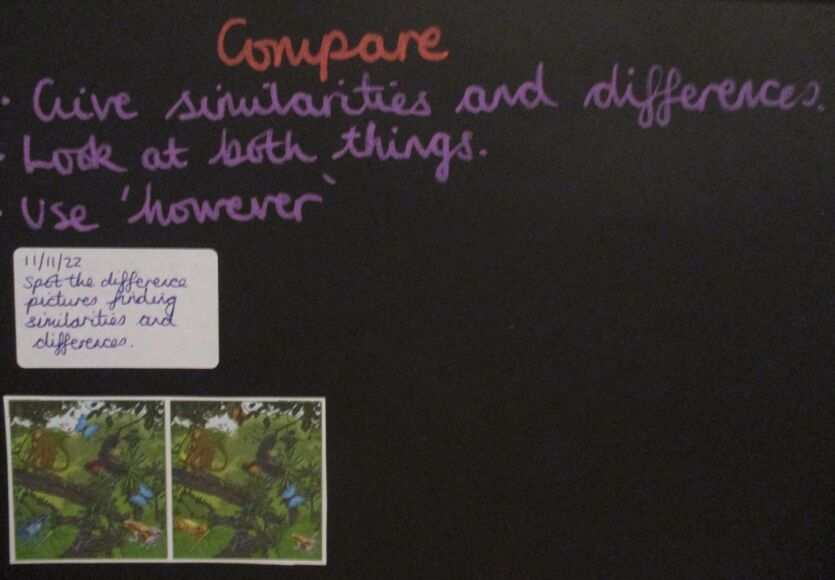 Compare
· Give similarities and differences.
· Look at both things.
· Use 'however'
11/11/22
Spot the difference
pictures finding
similarities and
differences.